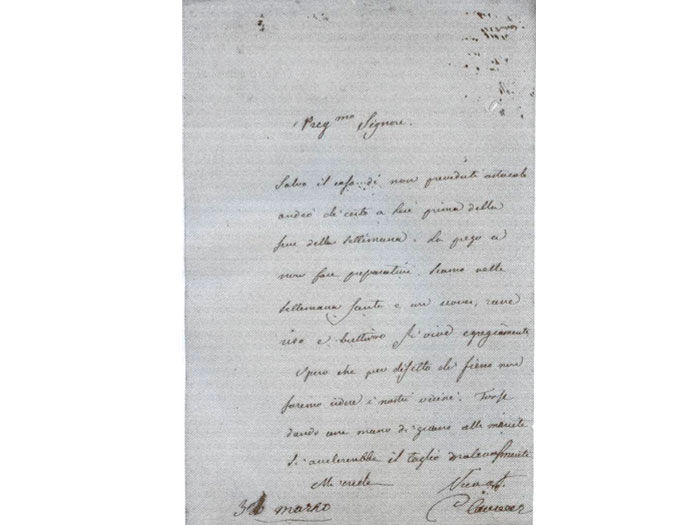 Preg.mo Signore.
Salvo il caso di non preveduti ostacoli
andrò di certo a Leri prima della
fine della settimana. La prego a
non fare preparativi. Siamo nella
settimana santa e con uova, rave
riso e butirro si vive egregiamente
Spero che per difetto di fieno non
faremo ridere i nostri vicini. Forse
dando una mano di grano alle
si accelererebbe il taglio
Mi creda
30 marzo